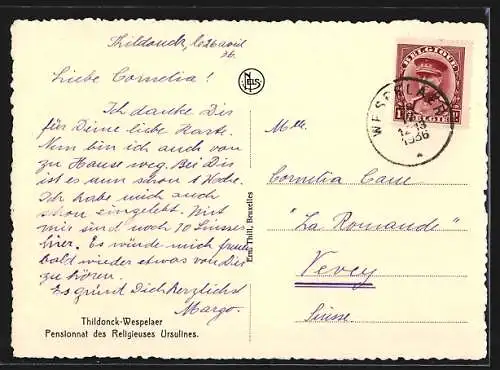 Thildonck, le 26 avril
36.
Liebe Cornelia!
Ich danke Dir
für Deine liebe Karte.
Nun bin ich auch von
zu Hause weg. Bei Dir
ist es nun schon 1 Woche.
Ich habe mich auch
schon eingelebt. Mit
mir sind noch 10 Suisses
hier. Es würde mich freun
bald wieder etwas von Dir
zu hören.
Es grüsst Dich herzlichst
Margo.
Thildonck-Wespelaer
Pensionnat des Religieuses Ursulines.
NELS
Ern. Thill, Bruxelles
BELGIQUE
BELGIË
WESPELAER
1936
Mlle.
Cornelia Cane
"La Romande"
Vevey
Suisse